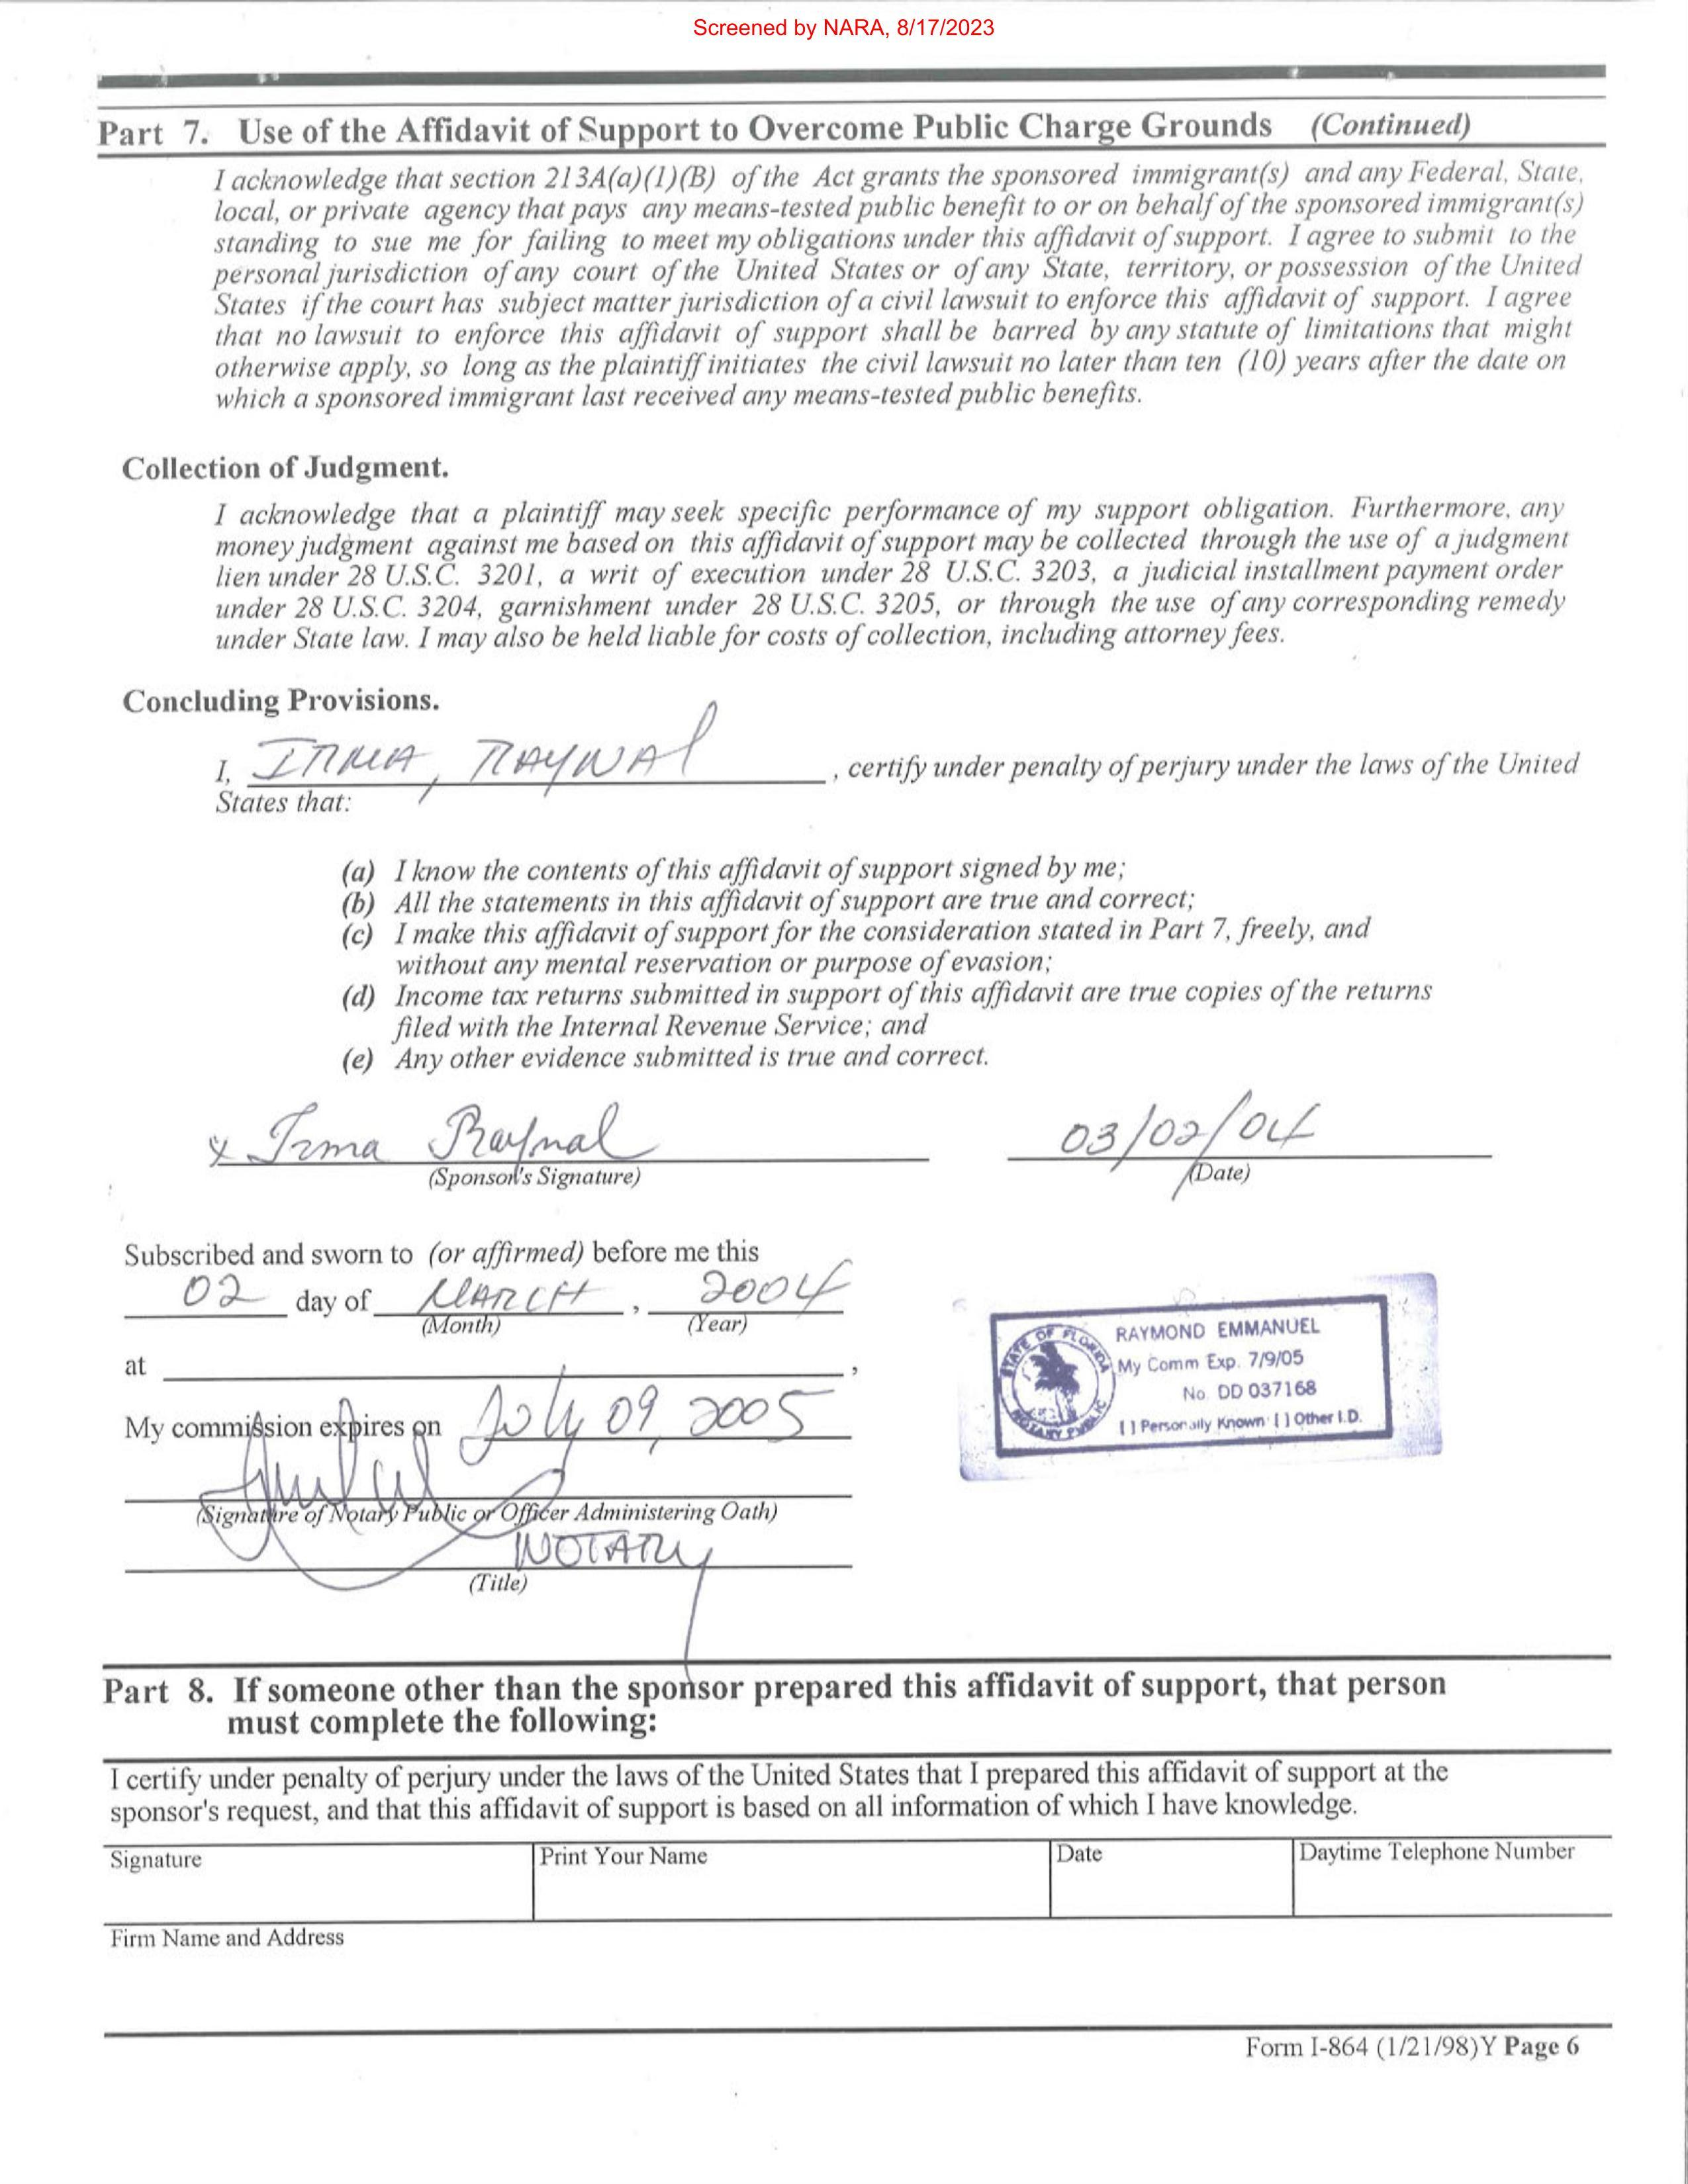 Screened by NARA, 8/17/2023
Part 7. Use of the Affidavit of Support to Overcome Public Charge Grounds (Continued)
I acknowledge that section 213A(a)(1)(B) of the Act grants the sponsored immigrant(s) and any Federal, State,
local, or private agency that pays any means-tested public benefit to or on behalf of the sponsored immigrant(s)
standing to sue me for failing to meet my obligations under this affidavit of support. I agree to submit to the
personal jurisdiction of any court of the United States or of any State, territory, or possession of the United
States if the court has subject matter jurisdiction of a civil lawsuit to enforce this affidavit of support. I agree
that no lawsuit to enforce this affidavit of support shall be barred by any statute of limitations that might
otherwise apply, so long as the plaintiff initiates the civil lawsuit no later than ten (10) years after the date on
which a sponsored immigrant last received any means-tested public benefits.
Collection of Judgment.
I acknowledge that a plaintiff may seek specific performance of my support obligation. Furthermore, any
money judgment against me based on this affidavit of support may be collected through the use of a judgment
lien under 28 U.S.C. 3201, a writ of execution under 28 U.S.C. 3203, a judicial installment payment order
under 28 U.S.C. 3204, garnishment under 28 U.S.C. 3205, or through the use of any corresponding remedy
under State law. I may also be held liable for costs of collection, including attorney fees.
Concluding Provisions.
I, IRMA, RAYNAl , certify under penalty of perjury under the laws of the United
States that:
(a) I know the contents of this affidavit of support signed by me;
(b) All the statements in this affidavit of support are true and correct;
(c) I make this affidavit of support for the consideration stated in Part 7, freely, and
without any mental reservation or purpose of evasion;
(d) Income tax returns submitted in support of this affidavit are true copies of the returns
filed with the Internal Revenue Service; and
(e) Any other evidence submitted is true and correct.
x Irma Raynal 03/02/04
(Sponsor's Signature) (Date)
Subscribed and sworn to (or affirmed) before me this
02 day of MARCH , 2004
(Month) (Year)
at ,
My commission expires on July 09, 2005
(Signature of Notary Public or Officer Administering Oath)
NOTARY
(Title)
STATE OF FLORIDA
NOTARY PUBLIC
RAYMOND EMMANUEL
My Comm Exp. 7/9/05
No. DD 037168
[ ] Personally Known [ ] Other I.D.
Part 8. If someone other than the sponsor prepared this affidavit of support, that person
must complete the following:
I certify under penalty of perjury under the laws of the United States that I prepared this affidavit of support at the
sponsor's request, and that this affidavit of support is based on all information of which I have knowledge.
Signature Print Your Name Date Daytime Telephone Number
Firm Name and Address
Form I-864 (1/21/98)Y Page 6